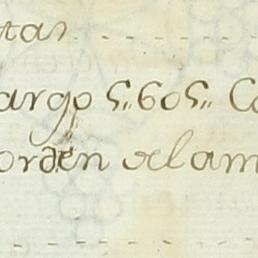 tas
argo 5"605" Ca
orden delam